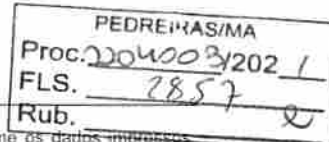 PEDREIRAS/MA
Proc. 2204003/2021
FLS. 2857
Rub.
os dados impressos